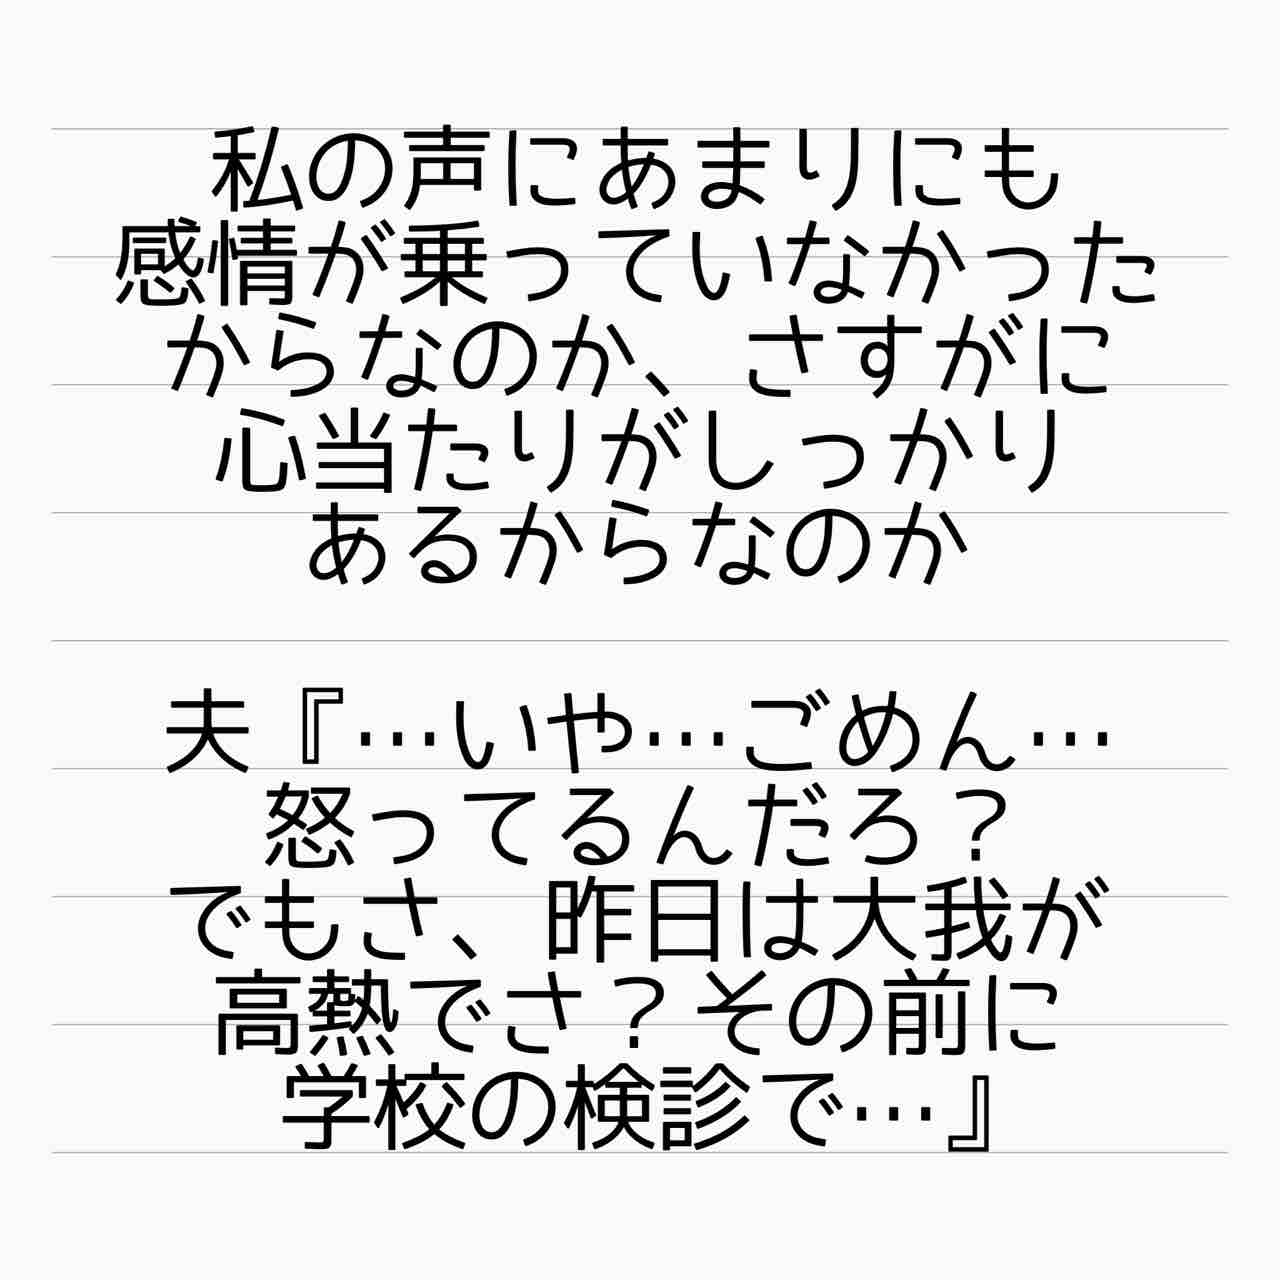 私の声にあまりにも
感情が乗っていなかった
からなのか、さすがに
心当たりがしっかり
あるからなのか
夫『…いや…ごめん…
怒ってるんだろ？
でもさ、昨日は大我が
高熱でさ？その前に
学校の検診で…』